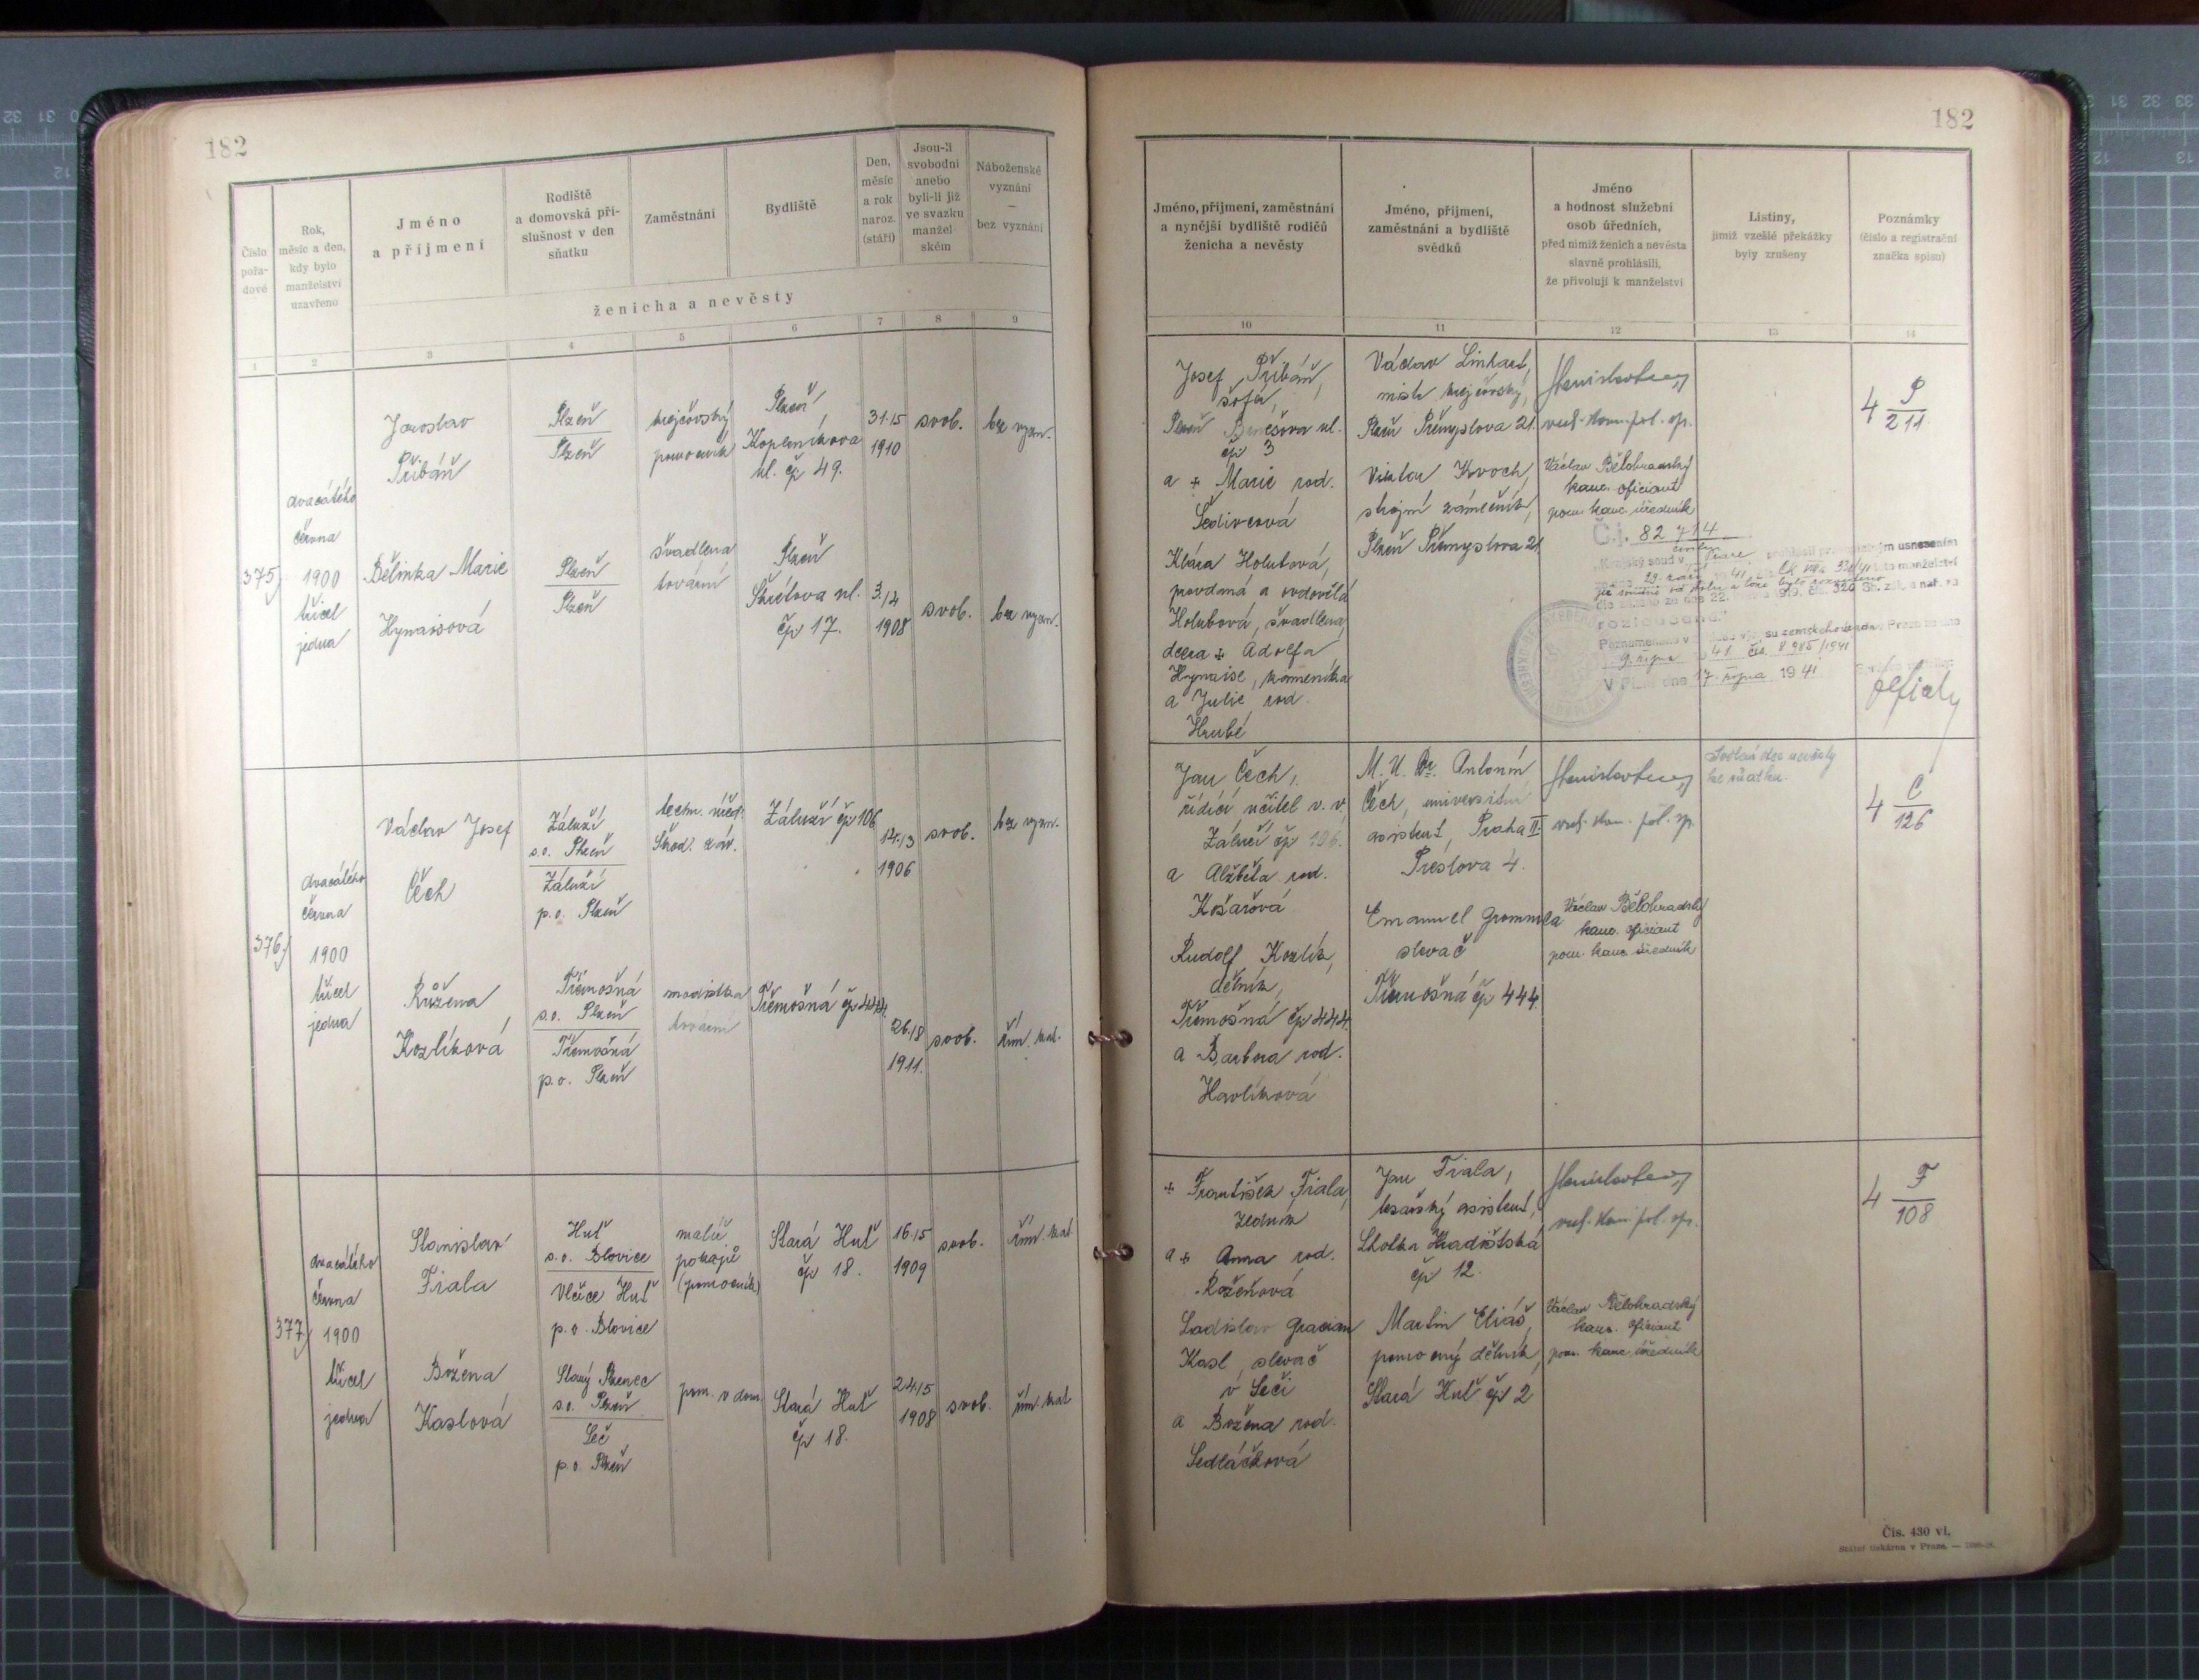 182
Číslo pořa-dové
Rok, měsíc a den, kdy bylo manželství uzavřeno
Jméno a příjmení
Rodiště a domovská pří-slušnost v den sňatku
Zaměstnání
Bydliště
Den, měsíc a rok naroz. (stáří)
Jsou-li svobodni anebo byli-li již ve svazku manžel-ském
Náboženské vyznání — bez vyznání
ženicha a nevěsty
1 2 3 4 5 6 7 8 9
375
dvacátého
června
1900
třicet
jedna
Jaroslav
Přibáň
Plzeň
Plzeň
krejčovský
pomocník
Plzeň,
Koperníkova
ul. čp 49.
31./5
1910
svob.
bez vyzn.
Bělinka Marie
Hynaisová
Plzeň
Plzeň
švadlena
tovární
Plzeň
Škrétova ul.
čp 17.
3./4
1908
svob.
bez vyzn.
376
dvacátého
června
1900
třicet
jedna
Václav Josef
Čech
Záluží
s.o. Plzeň
Záluží
p.o. Plzeň
techn. úřed.
Škod. záv.
Záluží čp 106
14./3
1906
svob.
bez vyzn.
Růžena
Kozlíková
Třemošná
s.o. Plzeň
Třemošná
p.o. Plzeň
modistka
tovární
Třemošná čp 444.
26./8
1911.
svob.
řím. kat.
377
dvacátého
června
1900
třicet
jedna
Stanislav
Fiala
Huť
s.o. Blovice
Vlčice Huť
p.o. Blovice
malíř
pokojů
(pomocník)
Stará Huť
čp 18.
16./5
1909
svob.
řím. kat
Božena
Kaslová
Starý Plzenec
s.o. Plzeň
Seč
p.o. Plzeň
pom. v dom.
Stará Huť
čp 18.
24./5
1908
svob.
řím. kat
182
Jméno, příjmení, zaměstnání a nynější bydliště rodičů ženicha a nevěsty
Jméno, příjmení, zaměstnání a bydliště svědků
Jméno a hodnost služební osob úředních, před nimiž ženich a nevěsta slavně prohlásili, že přivolují k manželství
Listiny, jimiž vzešlé překážky byly zrušeny
Poznámky (číslo a registrační značka spisu)
10 11 12 13 14
Josef Přibáň,
šofér,
Plzeň Benešova ul.
čp 3
a + Marie rod.
Šedivcová
Klára Holubová,
provdaná a ovdovělá
Holubová, švadlena,
dcera + Adolfa
Hynaise, kameníka
a Julie rod.
Hrubé
Václav Linhart,
mistr krejčovský,
Plzeň Přemyslova 21.
Viktor Kvoch,
strojní zámečník,
Plzeň Přemyslova 21
vrch. kom. pol. spr.
Václav Bělohradský
kanc. oficiant
pom. kanc. úředník
Č.j. 82 714
Krajský soud
usnesením
manželství
rozloučeno
9. října 41 čís. 8985/1941
dne 17. října 1941
4 P
211
Jan Čech,
řídící učitel v. v.
Záluží čp 106.
a Alžběta rod.
Košařová
Rudolf Kozlík,
dělník,
Třemošná čp 444.
a Barbora rod.
Havlíková
M. U. Dr. Antonín
Čech, universitní
asistent, Praha II.
Preslova 4.
Emanuel Grammla
slevač
Třemošná čp 444
vrch. kom. pol. spr.
Václav Bělohradský
kanc. oficiant
pom. kanc. úředník
Svolení otce nevěsty
ke sňatku.
4 Č
126
+ František Fiala,
zedník
a + Anna rod.
Roženová
Ladislav Gracian
Kasl, slevač
v Seči
a Božena rod.
Sedláčková
Jan Fiala,
tesařský asistent,
Lhotka Hradištská
čp 12.
Martin Eliáš,
pomocný dělník,
Stará Huť čp 2
vrch. kom. pol. spr.
Václav Bělohradský
kanc. oficiant
pom. kanc. úředník
4 F
108
Čís. 430 vl.
Státní tiskárna v Praze.